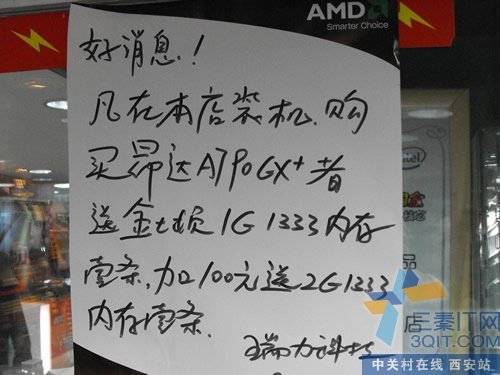 AMD
Smarter Choice
好消息!
凡在本店装机.购
买昂达A790GX+者
送金士顿1G 1333内存
壹条,加100元送2G1333
内存壹条.
瑞力科技
intel
品
店秦IT网
3QIT.COM
中关村在线 西安站